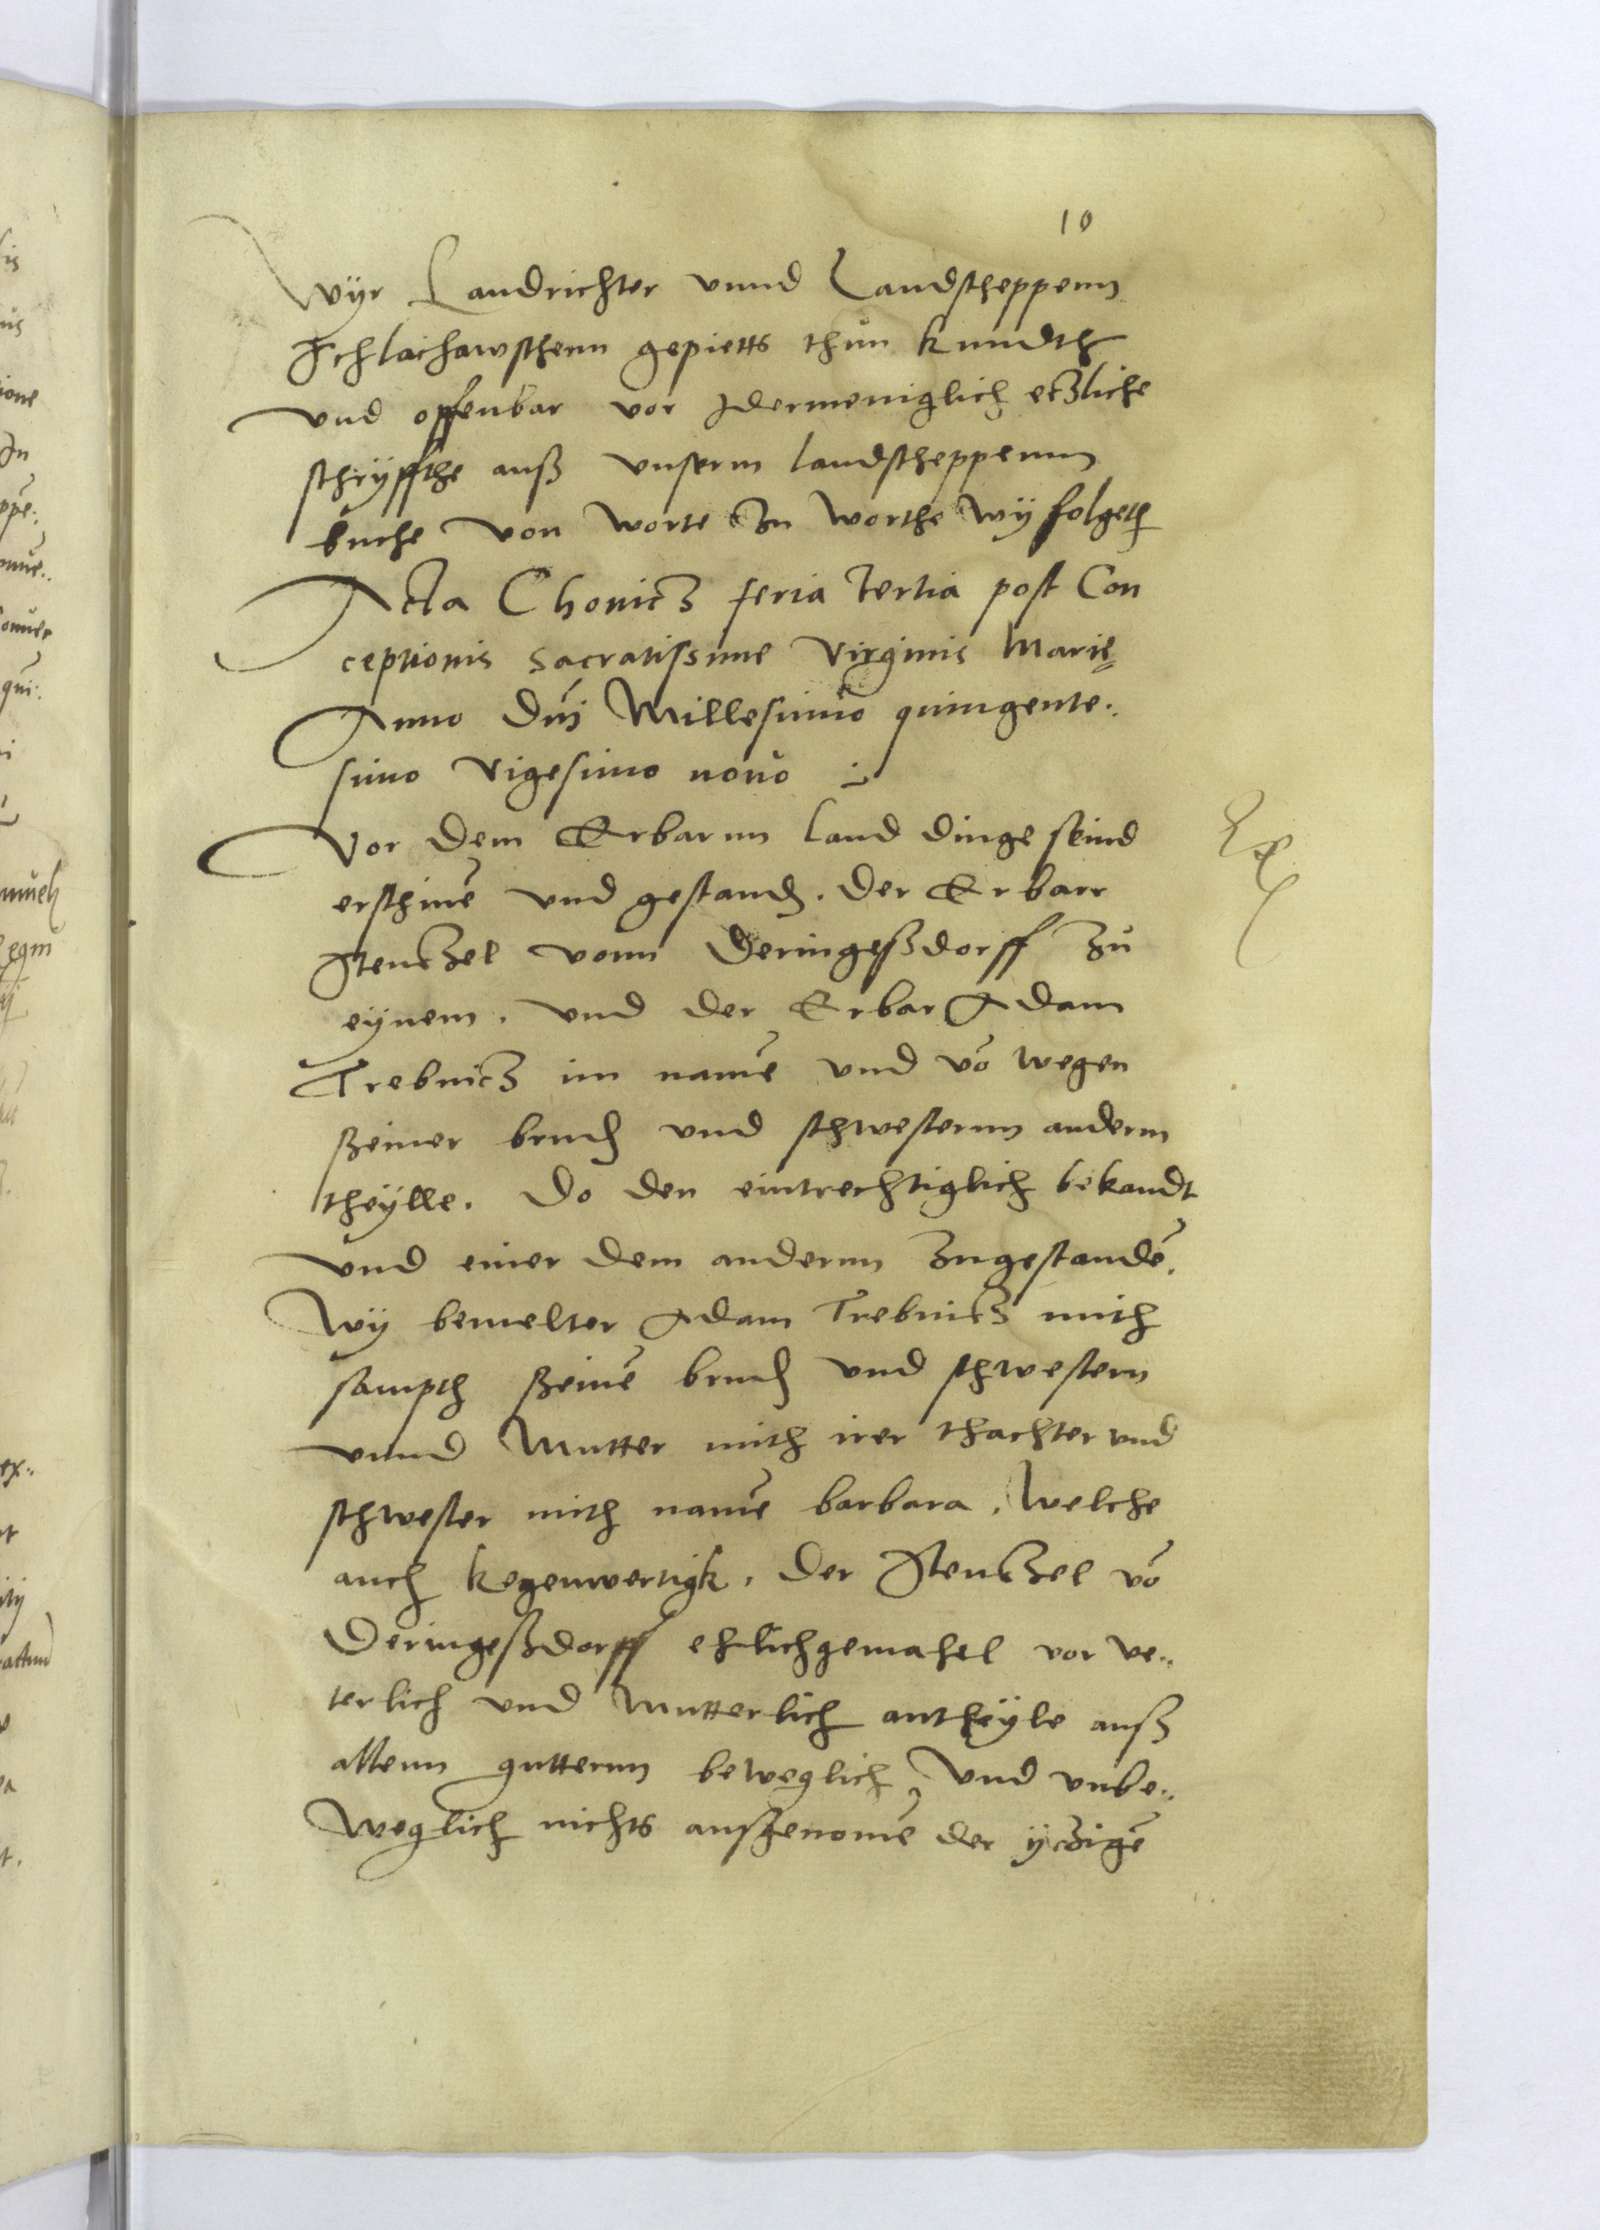 10
Wyr Landrichter vnnd Landscheppenn
Schlachawschenn gepietts thun kundth
vnd offenbar vor Idermeniglich etzliche
schryffthe auß vnserm landscheppenn
buche von worte Zu worthe wy folgeth
Acta Chonicz feria tertia post Con
ceptionis sacratissime virginis Marię
Anno dni Millesimo quingente..
simo vigesimo nono
Vor dem Erbarnn land dinge seind
erschinē vnd gestand. der Erbarr
Stentzel vonn Deringeßdorff zu
eynem. vnd der Erbar Adam
Trebnicz im namē vnd vō wegen
ßeiner brud vnd schwesternn anderm
theylle. Do den eintrechtiglich bekandt
vnd einer dem andernn zugestandē.
Wy bemelter Adam Trebnicz mith
sampth ßeinē brud vnd schwestern
vnnd Mutter mith irer thachter vnd
schwester mith namē barbara. welche
auch kegenwertigk. der Stentzel vō
Deringeßdorff ehlichgemahel vor ve..
terlich vnd Mutterlich antheyle auß
allenn gutternn beweglich vnd vnbe..
weglich nichts außgenomē der yczigē